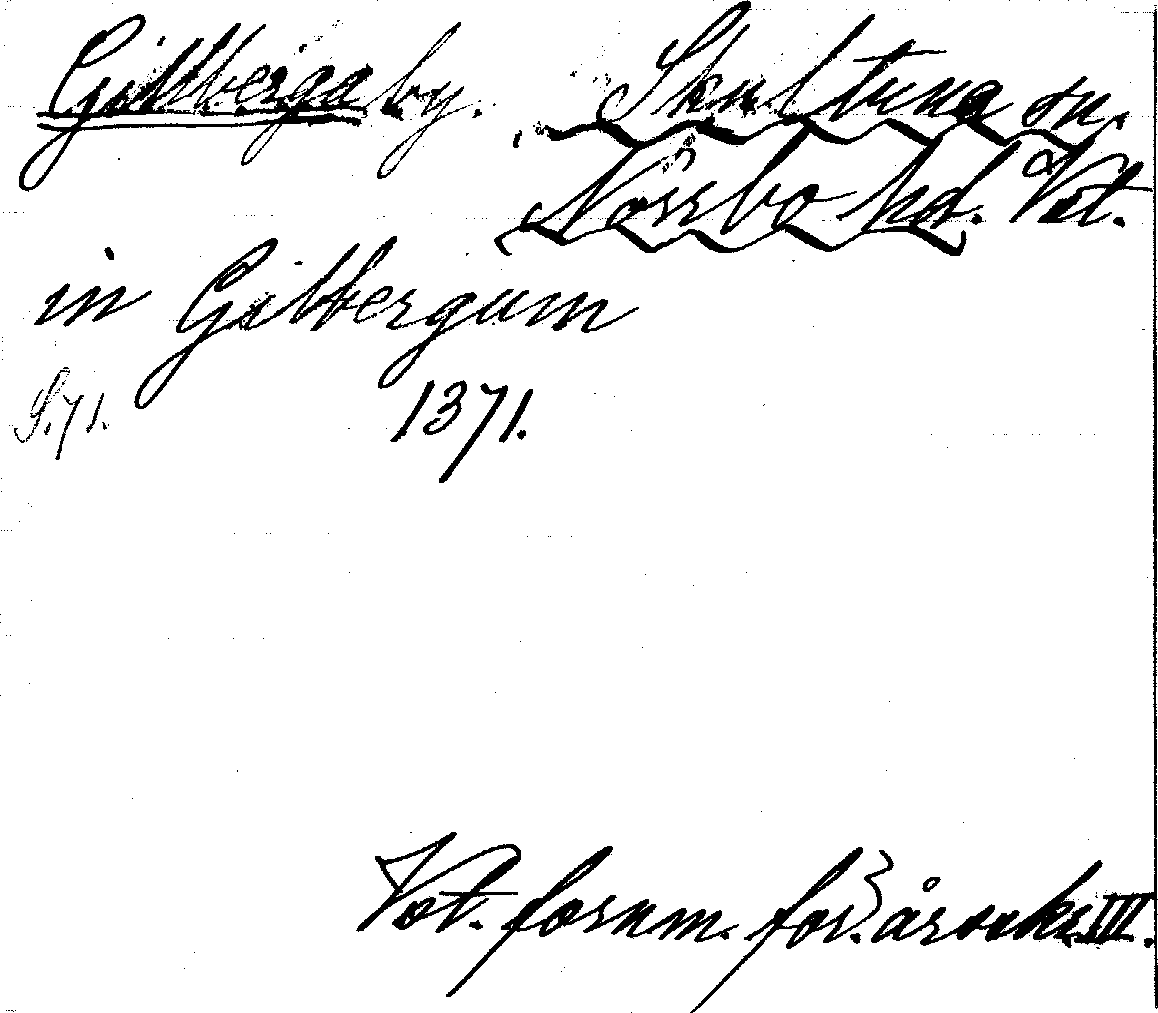 Gillberga by. Skultuna sn.
Norrbo hd. Vst.
in Gilbergum
S. 71. 1371.
Vst. fornm. för. årsskr. III.